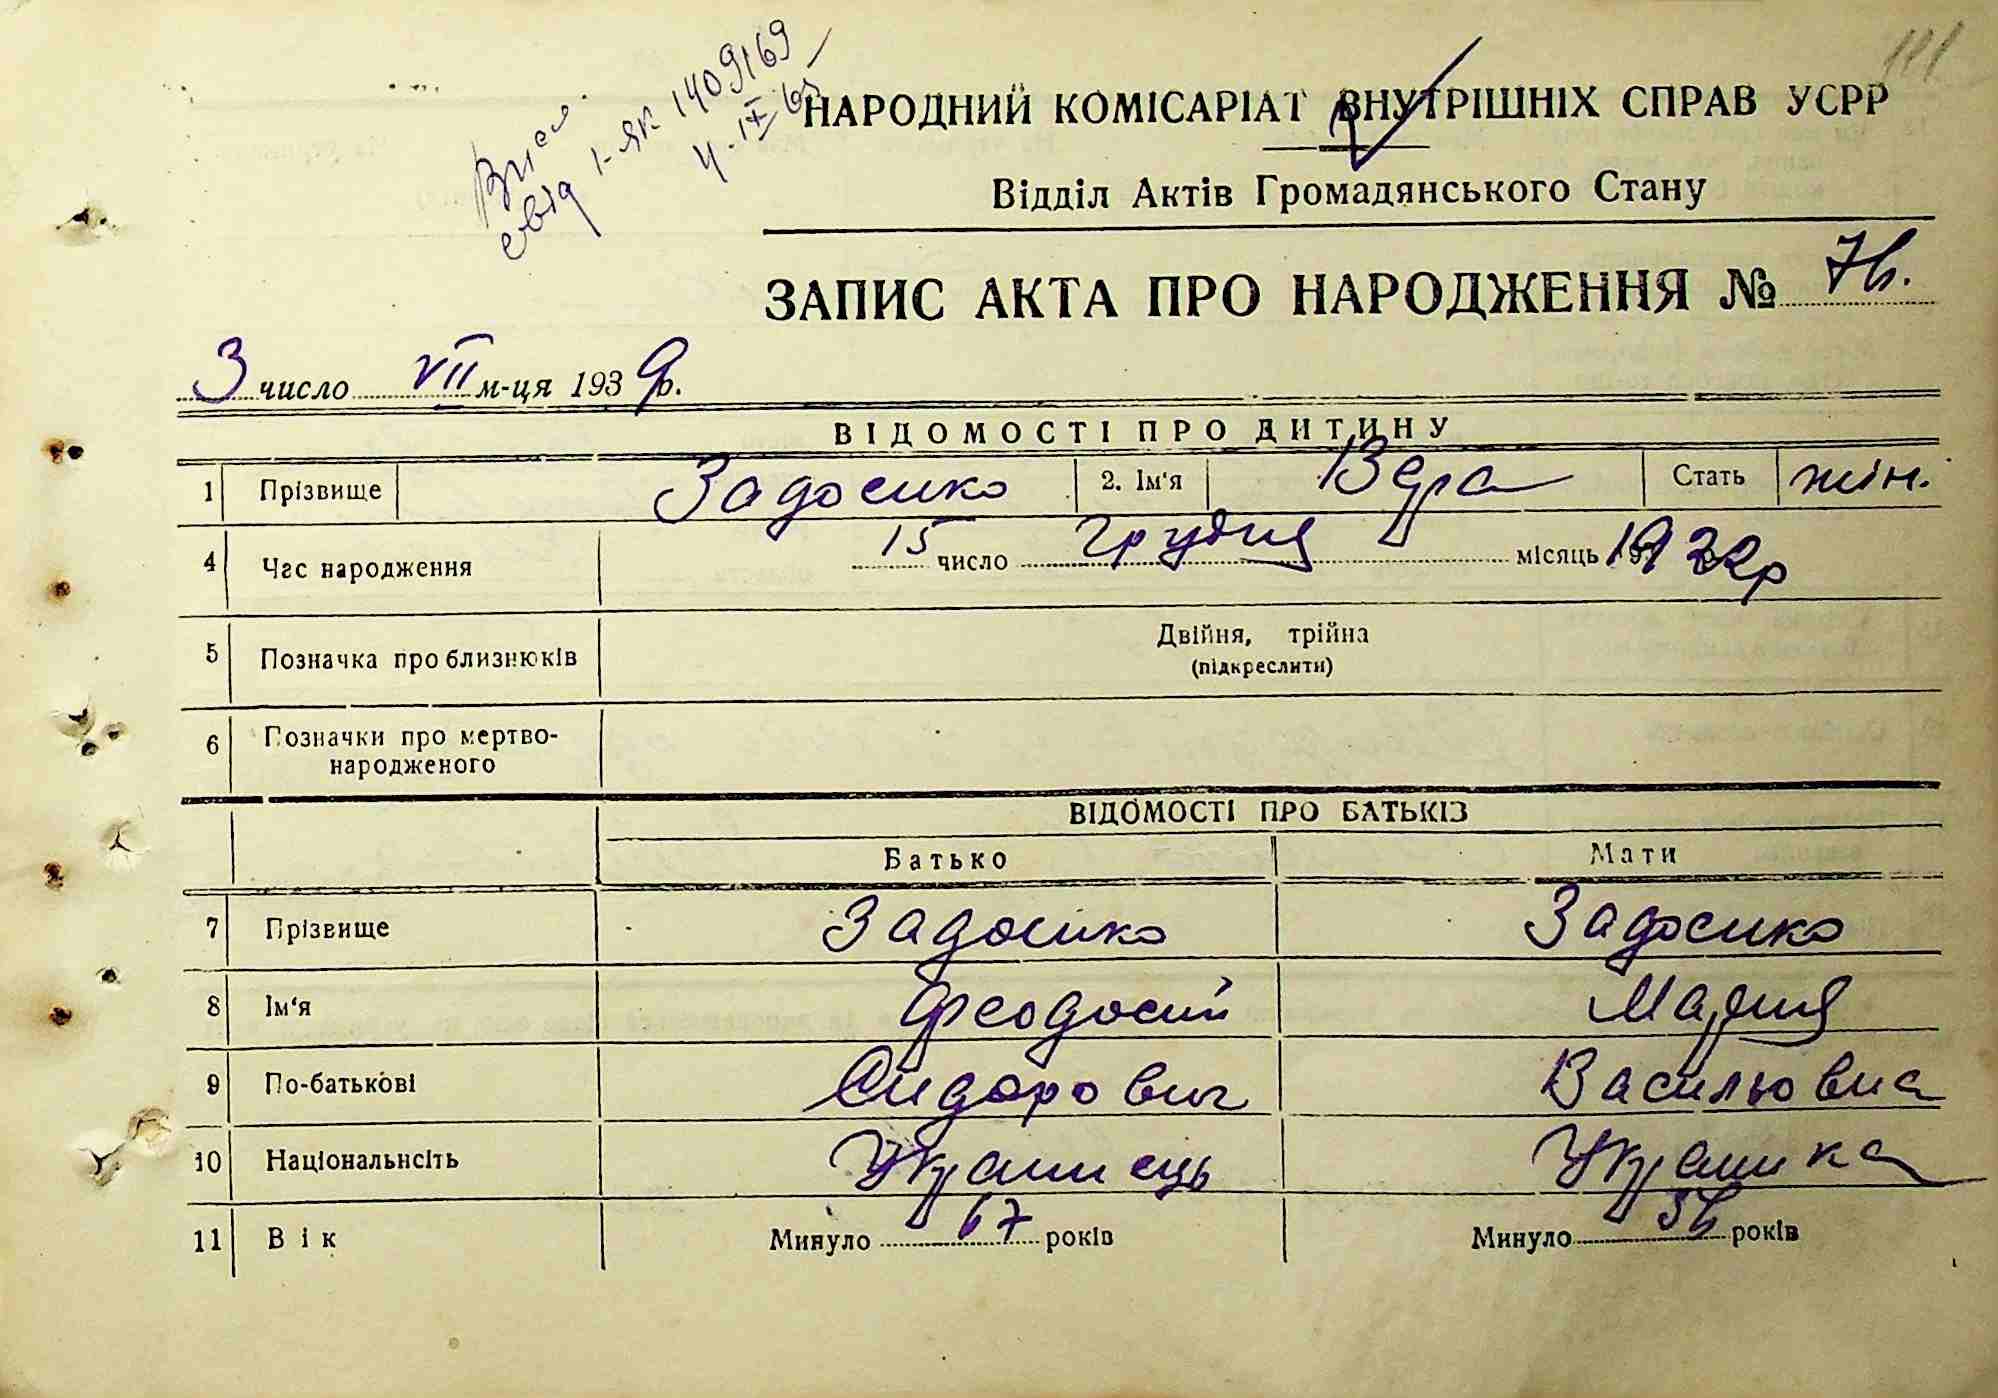 111
свід І-ЯК 1409169
4.IX 69
НАРОДНИЙ КОМІСАРІАТ ВНУТРІШНІХ СПРАВ УСРР
Відділ Актів Громадянського Стану
ЗАПИС АКТА ПРО НАРОДЖЕННЯ № 76.
3 число VII м-ця 1939 р.
ВІДОМОСТІ ПРО ДИТИНУ
1 Прізвище Задосико 2. Ім'я Вера Стать жін.
4 Час народження 15 число Грудня місяць 1922р
5 Позначка про близнюків Двійня, трійна
(підкреслити)
6 Позначки про мертво-
народженого
ВІДОМОСТІ ПРО БАТЬКІЗ
Батько Мати
7 Прізвище Задосико Задосико
8 Ім'я Феодосий Мария
9 По-батькові Сидорович Васильовна
10 Національнсіть Українець Українка
11 Вік Минуло 67 років Минуло 56 років